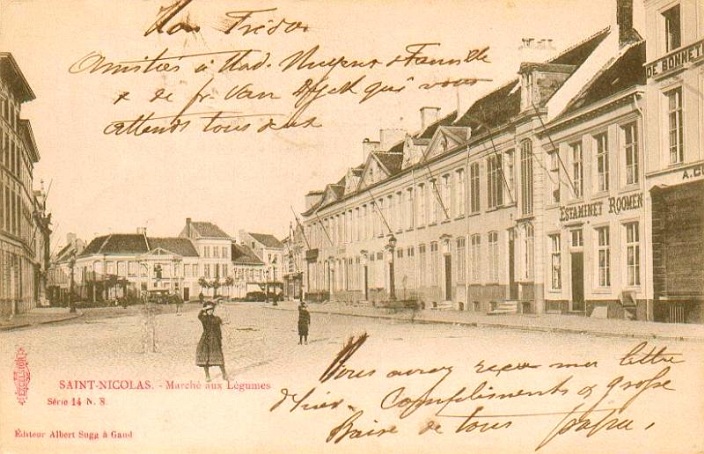 Mon Trésor
Amitiés à Mad. Nuyens & famille
& de fr. Van Dyck qui vous
attends tous deux
DE BONNET
A. C
ESTAMINET ROOMEN
SAINT-NICOLAS. - Marché aux Légumes
Série 14 N. 8.
Editeur Albert Sugg à Gand
Vous aurez reçu ma lettre
d'hier. Compliments & grosse
Baise de tous papa,